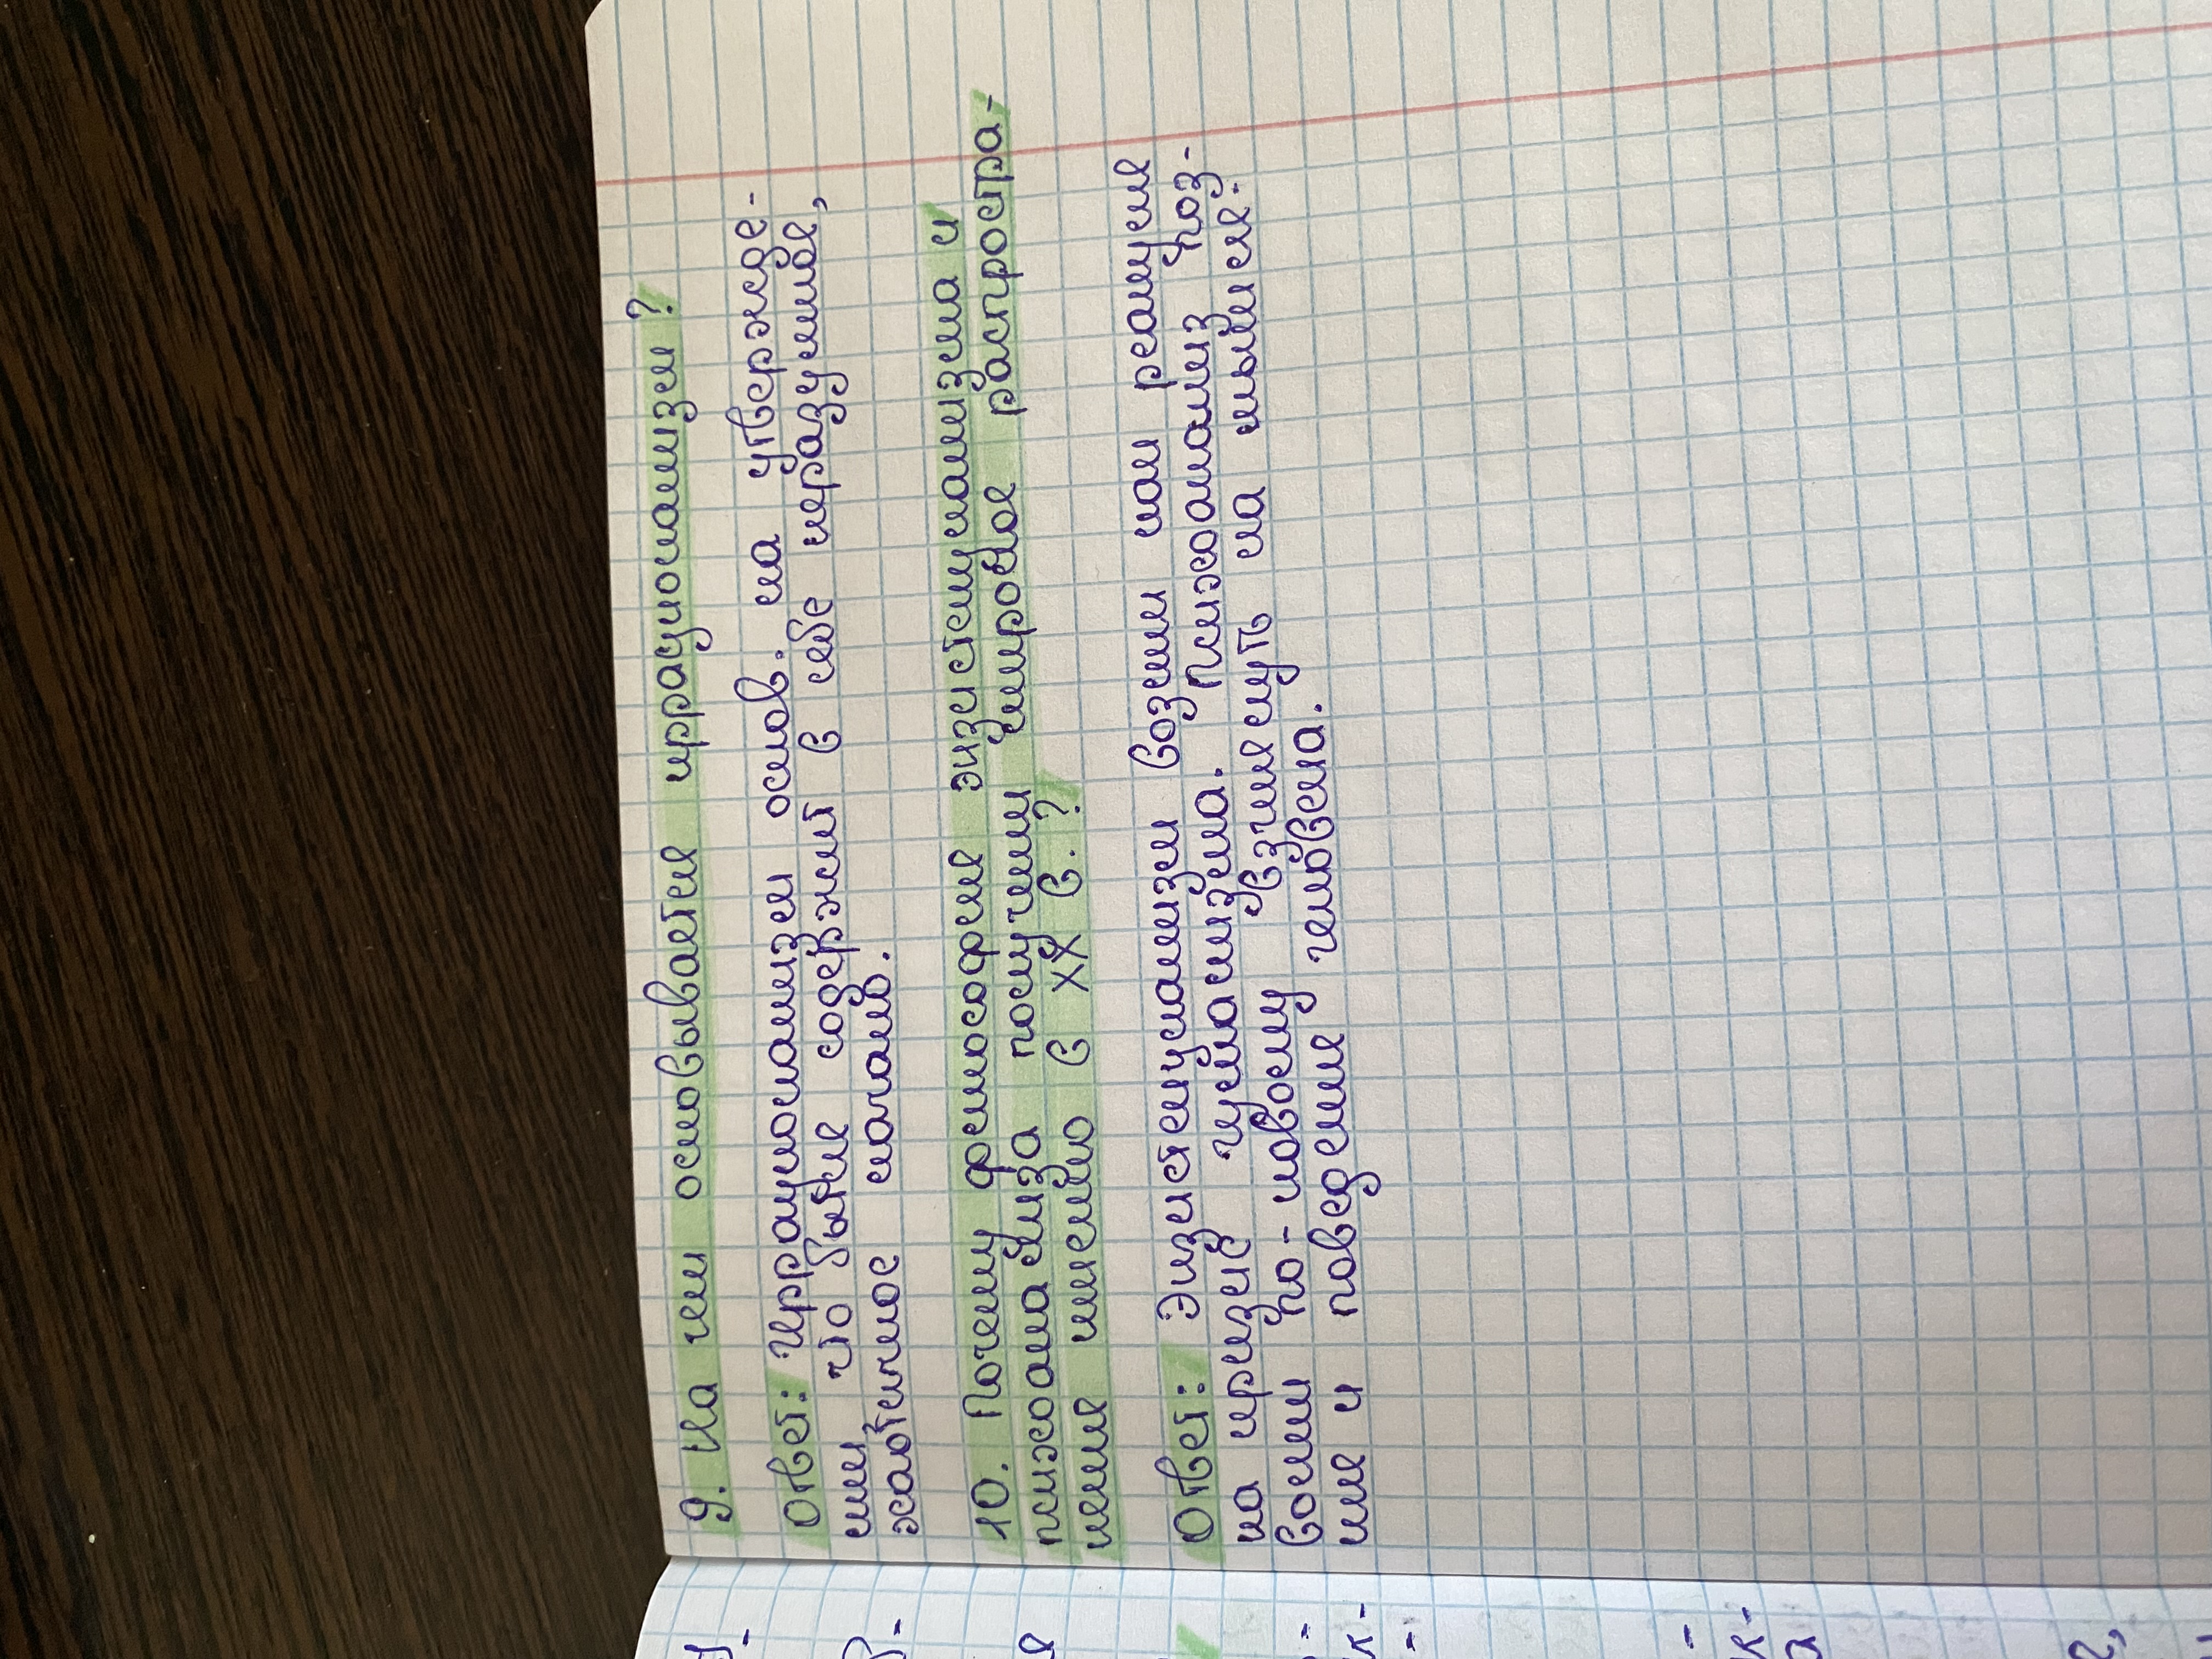 9. На чем основывается иррационализм?
Ответ: Иррационализм основ. на утвержде-
нии что бытие содержит в себе неразумное,
хаотичное начало.
10. Почему философия экзистенциализма и
психоанализа получили широкое распростра-
нение именно в XX в.?
Ответ: Экзистенциализм возник как реакция
на кризис гуманизма. Психоанализ поз-
волил по-новому взглянуть на мышле-
ние и поведение человека.